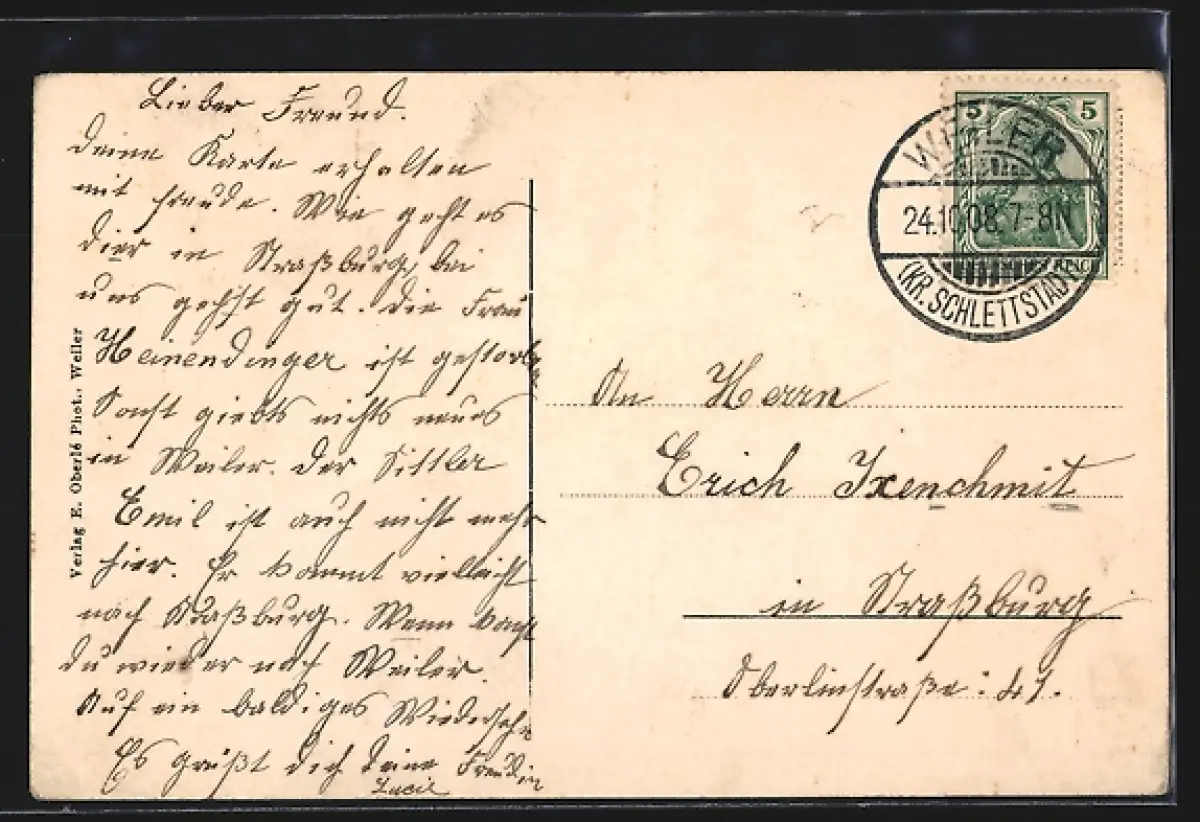 Lieber Freund.
Deine Karte erhalten
mit freude. Wie geht es
dier in Straßburg, bei
uns gehst gut. Die Frau
Heinendinger ist gestorben
Sonst giebts nichts neues
in Weiler. Der Sittler
Emil ist auch nicht mehr
hier. Er kommt vielleicht
nach Straßburg. Wenn komst
du wieder nach Weiler.
Auf ein baldiges Wiedersehn
Es grüßt dich deine Freundin
Lucie
Verlag E. Oberlé Phot., Weiler
5 5
WEILER
24.10.08. 7-8N
(KR. SCHLETTSTADT)
An Herrn
Erich Ixenchmit
in Straßburg
Oberlinstraße: 41.